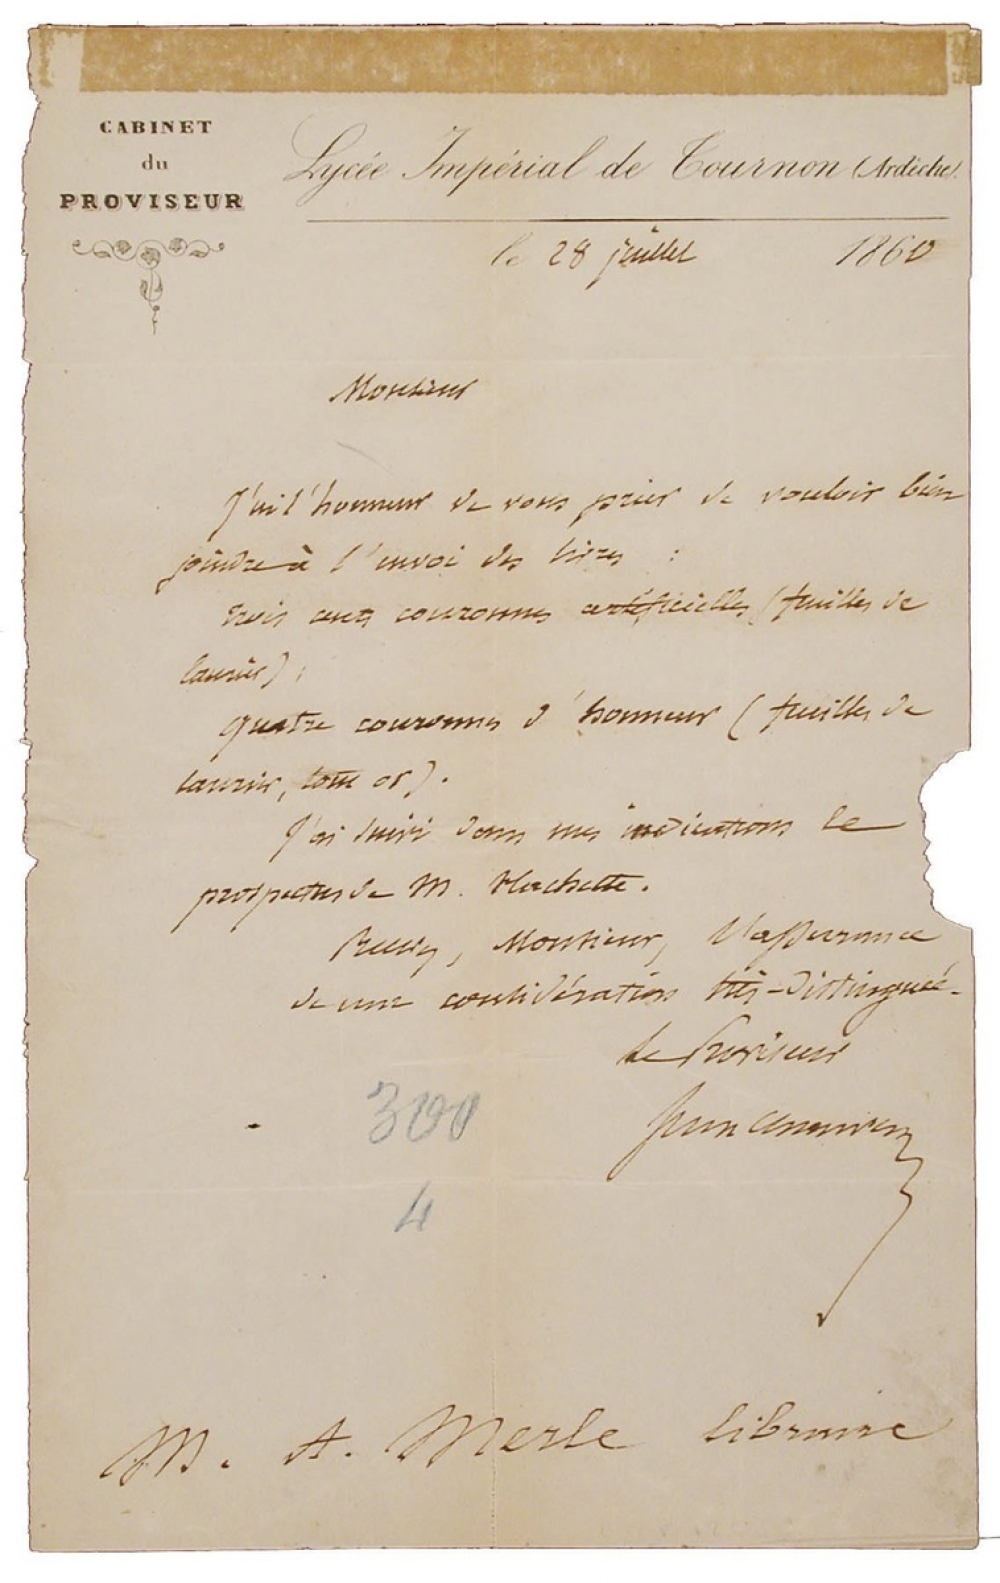 CABINET
du
PROVISEUR
Lycée Impérial de Tournon (Ardèche).
le 28 juillet 1860
Monsieur
J'ai l'honneur de vous prier de vouloir bien
joindre à l'envoi des livres :
trois cents couronnes artificielles (feuilles de
laurier) ;
quatre couronnes d'honneur (feuilles de
laurier, tout or).
J'ai suivi dans mes indications le
prospectus de M. Hachette.
Recevez, Monsieur, l'assurance
de ma considération très-distinguée.
Le Proviseur
300
4
M. A. Merle libraire